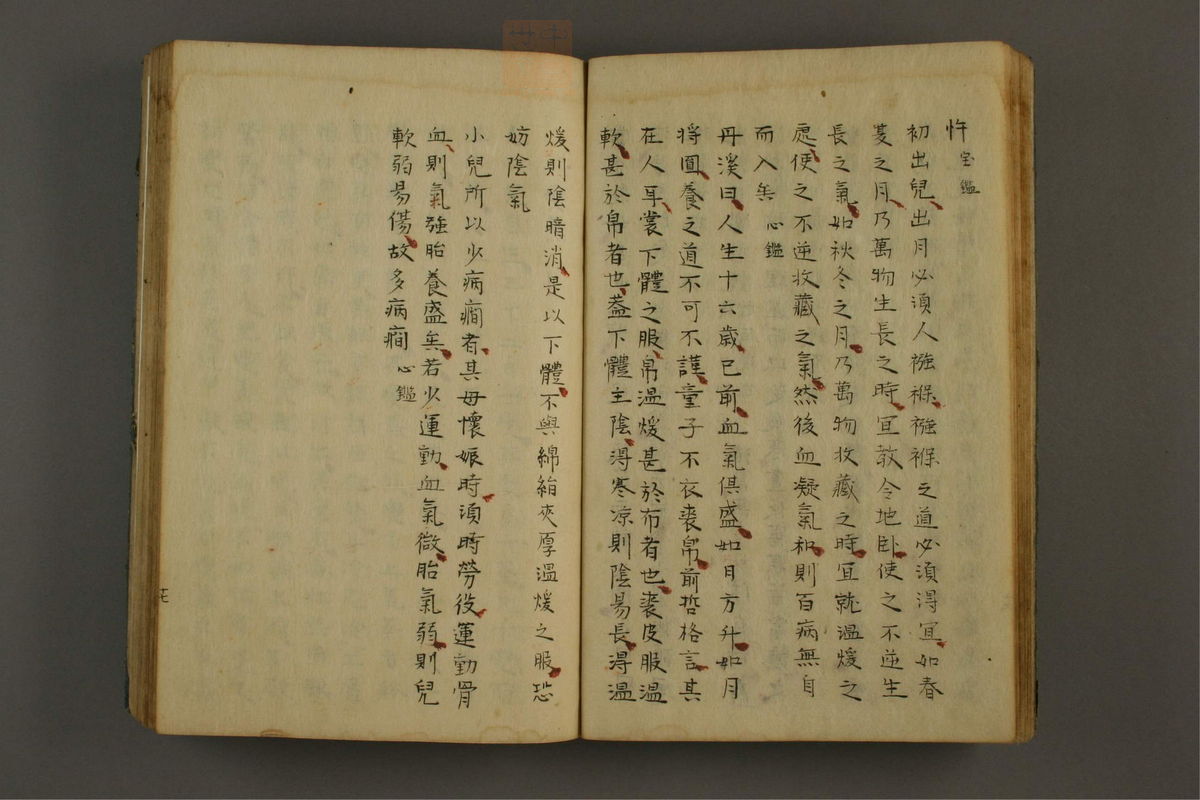 忤 宝鑑
初出兒出月必須人襁褓襁褓之道必須得宜如春
夏之月乃萬物生長之時宜教令地卧使之不逆生
長之氣如秋冬之月乃萬物收藏之時宜就温煖之
處使之不逆收藏之氣然後血凝氣和則百病無自
而入矣 心鑑
丹溪曰人生十六歳已前血氣俱盛如日方升如月
将圓養之道不可不謹童子不衣裘帛前哲格言其
在人耳裳下體之服帛温煖甚於布者也裘皮服温
軟甚於帛者也盖下體主陰得寒凉則陰易長得温
煖則陰暗消是以下體不與綿絹夾厚温煖之服恐
妨陰氣
小兒所以少病癎者其母懷娠時須時勞役運動骨
血則氣強胎養盛矣若少運動血氣微胎氣弱則兒
軟弱易傷故多病癎 心鑑